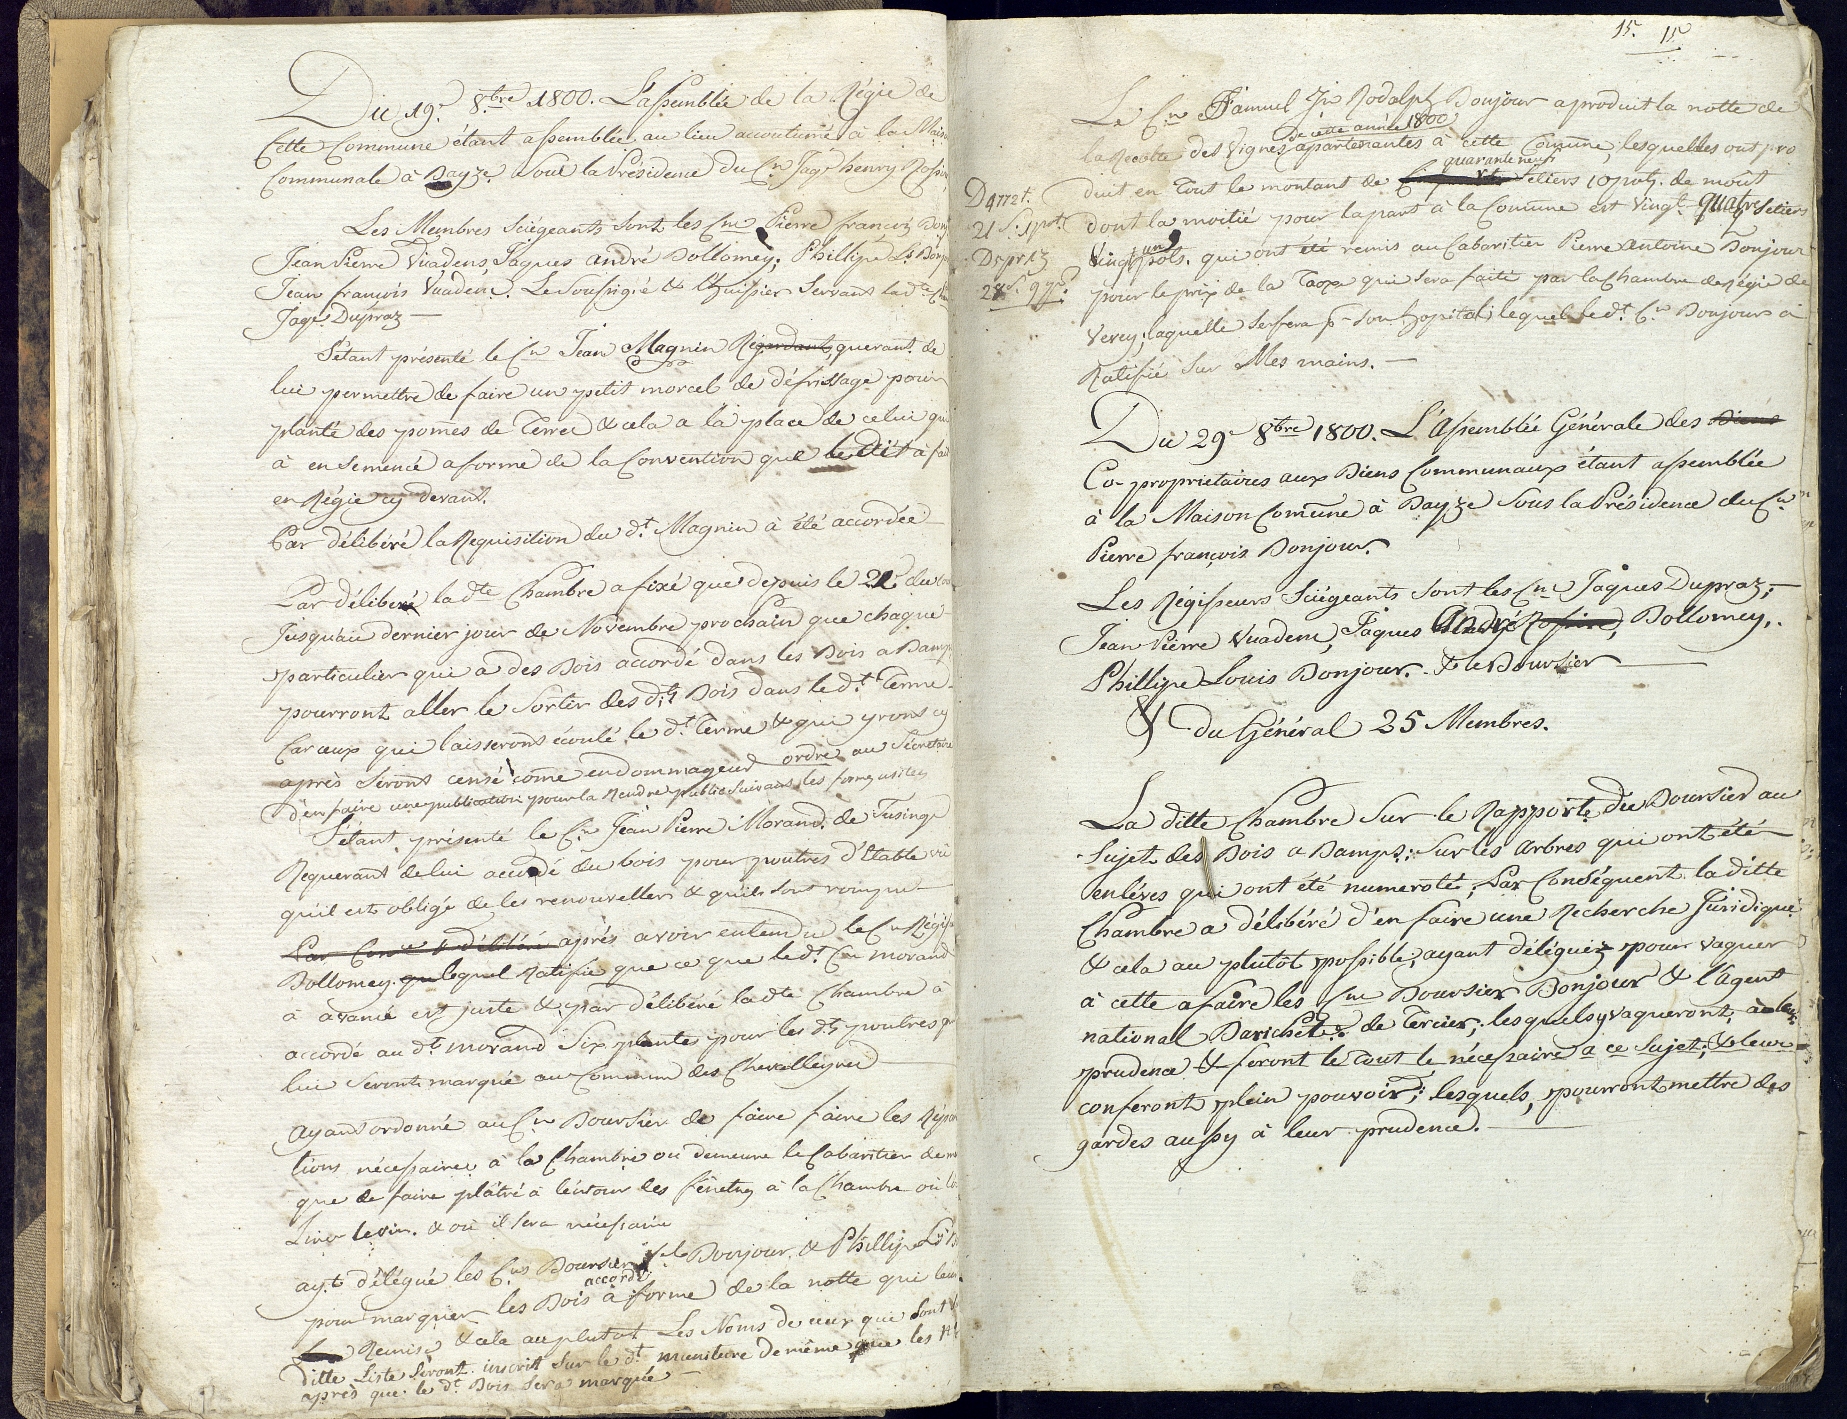 Du 19e 8bre 1800. L'assemblée de la Régie de
Cette Commune étant assemblée au lieu accoutumé à la Mais
Communale à Bayze sous la Présidence du Cn Jaqs henry
Les Membres Siégeants sont les Cns Pierre françois Bonj
Jean Pierre Vuadens, Jaques andré Dollomey, Phillipe Ls Bonj
Jean françois Vuadens. Le Soussigné & l'huissier Servant ladte
Jaqs Dupraz
S'étant présenté le Cn Jean Magnin Regardant, querant de
lui permettre de faire un petit morcel de défrissage pour
planté des pomes de Terres & cela a la place de celui qu
à ensemencé a forme de la Convention que le dit à fai
en Régie cy devant.
Par délibéré la Requisition du dt Magnin à été accordée
Par délibéré la dte Chambre a fixé que depuis le 22e du
Jusqu'au dernier jour de Novembre prochain que chaque
particulier qui a des Bois accordé dans les Bois a Bamps
pourront aller le Sortir des dits Bois dans le dt Terme
Car ceux qui laisseront écoulé le dt Terme & qui yront cy
après Seront censé come endommageur ordre au Sécretaire
d'en faire une publication pour la Rendre public Suivant les formes usitées
S'étant présenté le Cn Jean Pierre Morand de Tusinge
Requerant de lui accordé du bois pour poutres d'Etable vû
qu'il est obligé de les renouveller & quils sont rompu
Par Cons & délibéré après avoir entendu le Cn Régiss
Dollomey que lequel Ratifie que ce que le dt Cn morand
à avancé est juste & par délibéré la dte Chambre à
accordé au dt morand Six plantes pour les dts poutres qui
lui Seront marqué au Commun des Chevalleyres
Ayant ordonné au Cn Boursier de faire faire les Répara
tions nécessaires à la Chambre ou demeure le Cabaretier de m
que de faire plâtré à l'entour des fénetres à la Chambre ou
Livre le vin. & ou il Sera nécessaire
ayt délégué les Cns Boursier Bonjour & Phillipe Ls B
accordé
pour marquer les Bois à forme de la notte qui leur
Remise & cela au plutot Les Noms de ceux qui Sont
ditte Liste Seront inscrit Sur le dt manitere de même que les
après que le dt Bois Sera marqué
15. 15
Le Cn Samuel Jn Rodolph Bonjour a produit la notte de
de cette année 1800
la Récolte des Vignes apartenantes à cette Comune, lesquelles ont pro
quarante neuf
duit en Tout le montant de Setiers 10 pots. de moût
dont la moitié pour la part à la Comune est Vingt quatre Setiers
un
Vingt pots. qui ont été remis au Cabaritier Pierre Antoine Bonjour
pour le prix de la Taxe qui sera faite par la Chambre de Régie de
Vevey, laquelle se fera pr son hopital; lequel le dt Cn Bonjour à
Ratifié Sur Mes mains.
21 S. 1 pot
Dupraz
Du 29e 8bre 1800. L'Assemblée Générale des Biens
Co-proprietaires aux Biens Communaux étant assemblée
à la Maison Comune à Bayze Sous la Présidence du Cn
Pierre françois Bonjour.
Les Régisseurs Siégeants Sont les Cns Jaques Dupraz,
Jean Pierre Vuadens, Jaques André Dollomey,
Phillipe Louis Bonjour. & le Boursier
& du Général 25 Membres.
La ditte Chambre Sur le Rapport du Boursier au
Sujet des Bois a Bamps: Sur les Arbres qui ont été
enlévés qui ont été numeroté; Par Conséquent la ditte
Chambre a délibéré d'en faire une Recherche Juridique
& cela au plutôt possible, ayant déléguéz pour vaquer
à cette afaire les Cns Boursier Bonjour & l'Agent
national Barichet de Tercier, lesquels y vaqueront, à leur
prudence & feront le tout le nécessaire a ce Sujet; & leur
conferont plein pouvoir; lesquels, pourront mettre des
gardes aussy à leur prudence.